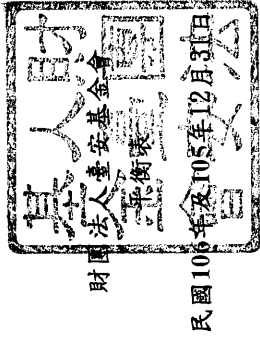 財團法人臺安基金會
平衡表
民國106年及105年12月31日